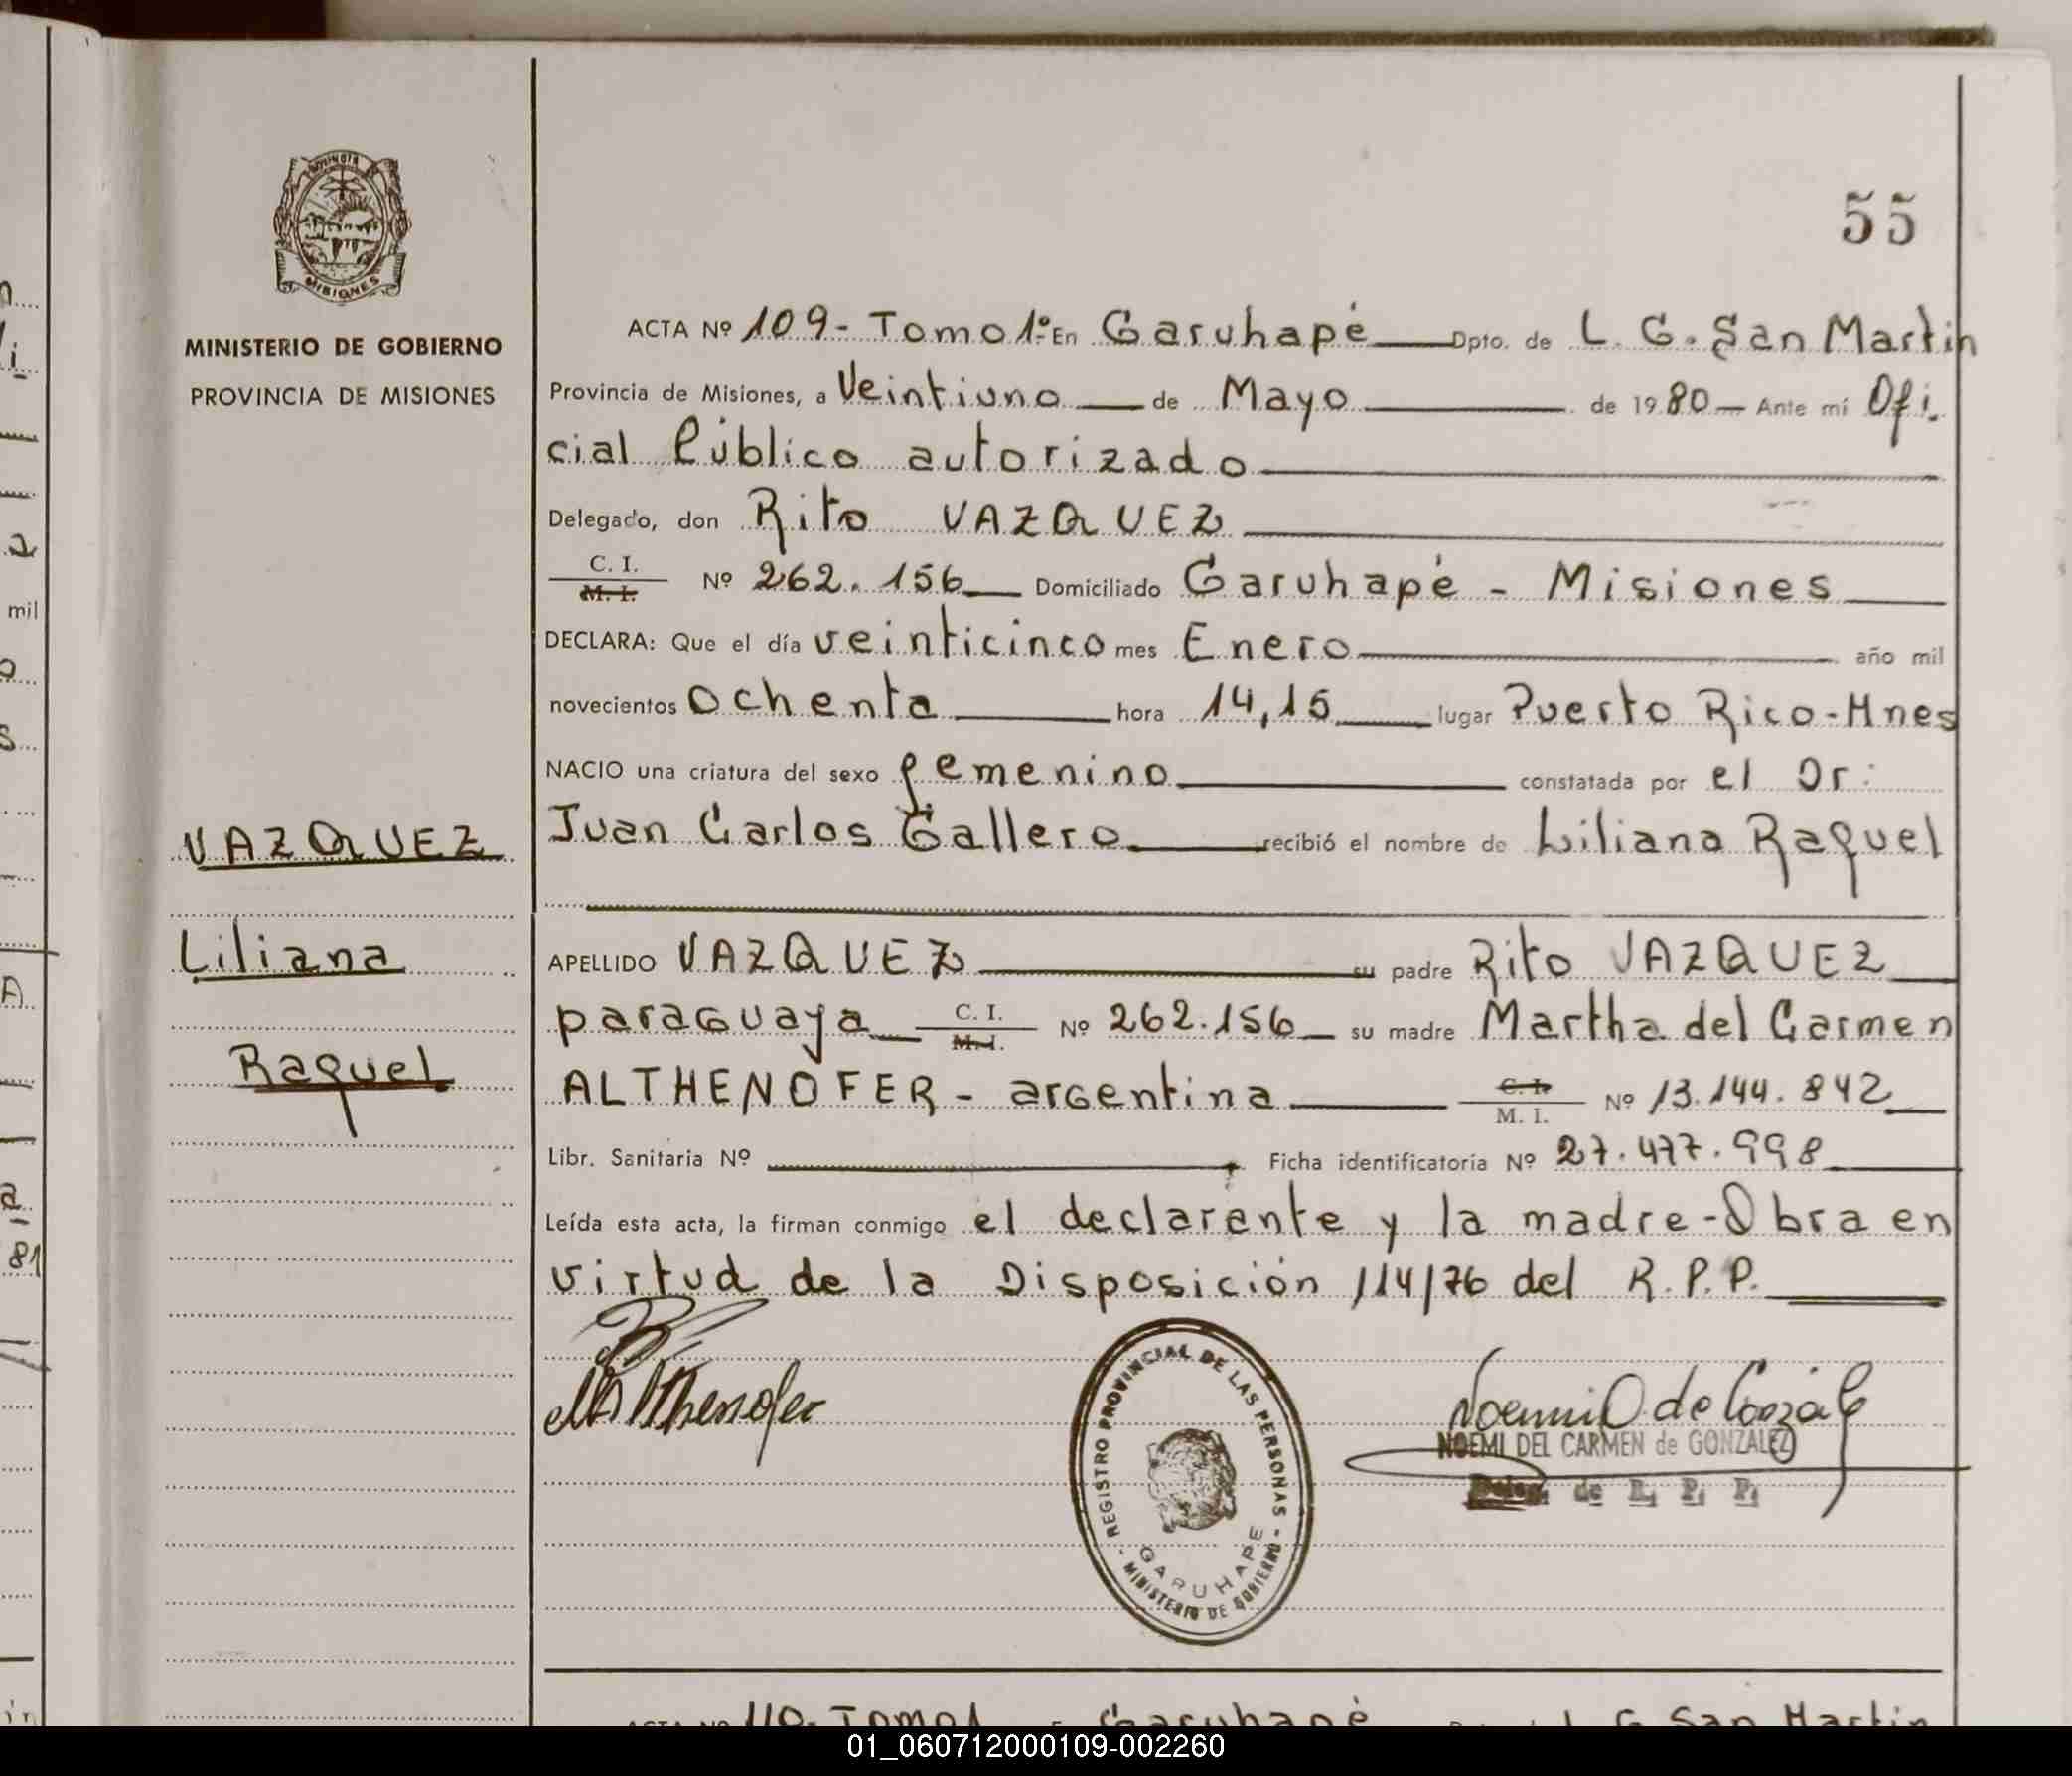 PROVINCIA
MISIONES
MINISTERIO DE GOBIERNO
PROVINCIA DE MISIONES
VAZQUEZ
Liliana
Raquel
55
ACTA Nº 109- Tomo 1º En Garuhapé Dpto. de L. G. San Martin
Provincia de Misiones, a Veintiuno de Mayo de 1980 Ante mí Ofi-
cial Público autorizado
Delegado, don Rito VAZQUEZ
C. I.
M. I. Nº 262.156 Domiciliado Garuhapé - Misiones
DECLARA: Que el día veinticinco mes Enero año mil
novecientos Ochenta hora 14,15 lugar Puerto Rico-Mnes
NACIO una criatura del sexo femenino constatada por el Dr:
Juan Carlos Gallero recibió el nombre de Liliana Raquel
APELLIDO VAZQUEZ su padre Rito VAZQUEZ
paraguaya C. I.
M. I. Nº 262.156 su madre Martha del Carmen
ALTHENOFER - argentina C. I.
M. I. Nº 13.144.842
Libr. Sanitaria Nº Ficha identificatoria Nº 27.477.998
Leída esta acta, la firman conmigo el declarante y la madre-Obra en
virtud de la Disposición 114/76 del R.P.P.
Althenofer
REGISTRO PROVINCIAL DE LAS PERSONAS - MINISTERIO DE GOBIERNO -
GARUHAPE
Noemi de Gonzalez
NOEMI DEL CARMEN de GONZALEZ
Deleg. de R. P. P.
ACTA Nº 110- Tomo 1 En Garuhapé L G San Martin
mil
81
01_060712000109-002260